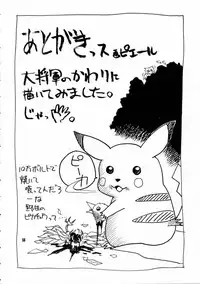 あとがきっス るピエール
大将軍のかわりに
描いてみました。
じゃっ
ピーカ
10万ボルトで
焼いて
喰ってんだろ
ーな
野生の
ピカチュウって